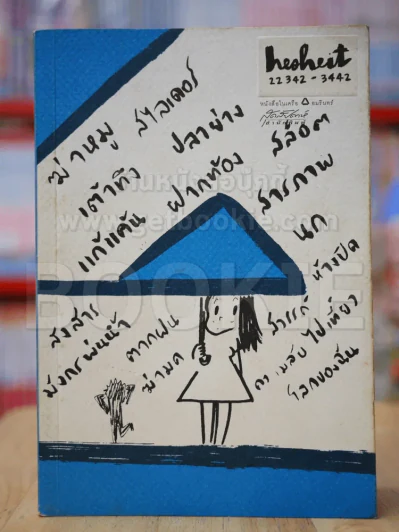 hesheit
22342-3442
หนังสือในเครือ อมรินทร์
ฆ่าหมู สไลเดอร์
เต้าทึง ปลาย่าง สล๊อต
แก้แค้น ฝากท้อง สารภาพ
นก
ห้างปิด
สงสาร
มังกรพ่นน้ำ
ตากฝน
ฆ่ามด
ไปเที่ยว
โลกของฉัน
ค้นหนังสือบุ๊คกี้
www.getbookie.com
BOOKIE